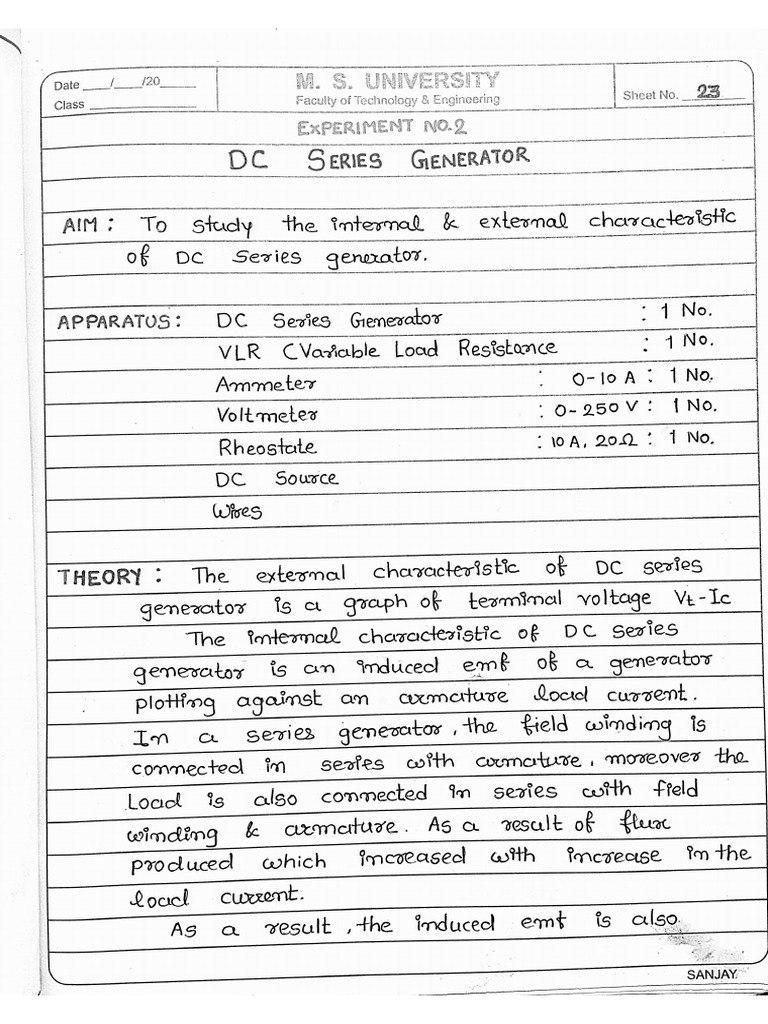 Date ____/____/20______
M. S. UNIVERSITY
Class ________________
Faculty of Technology & Engineering
Sheet No. 23
EXPERIMENT NO.2
DC SERIES GENERATOR
AIM : To study the internal & external characteristic
of DC Series generator.
APPARATUS : DC Series Generator : 1 No.
VLR (Variable Load Resistance : 1 No.
Ammeter : 0-10 A : 1 No.
Voltmeter : 0-250 V : 1 No.
Rheostate : 10 A, 20Ω : 1 No.
DC Source
Wires
THEORY : The external characteristic of DC series
generator is a graph of terminal voltage Vt-Ic
The internal characteristic of DC series
generator is an induced emf of a generator
plotting against an armature load current.
In a series generator, the field winding is
connected in series with armature, moreover the
Load is also connected in series with field
winding & armature. As a result of flux
produced which increased with increase in the
load current.
As a result, the induced emf is also
SANJAY